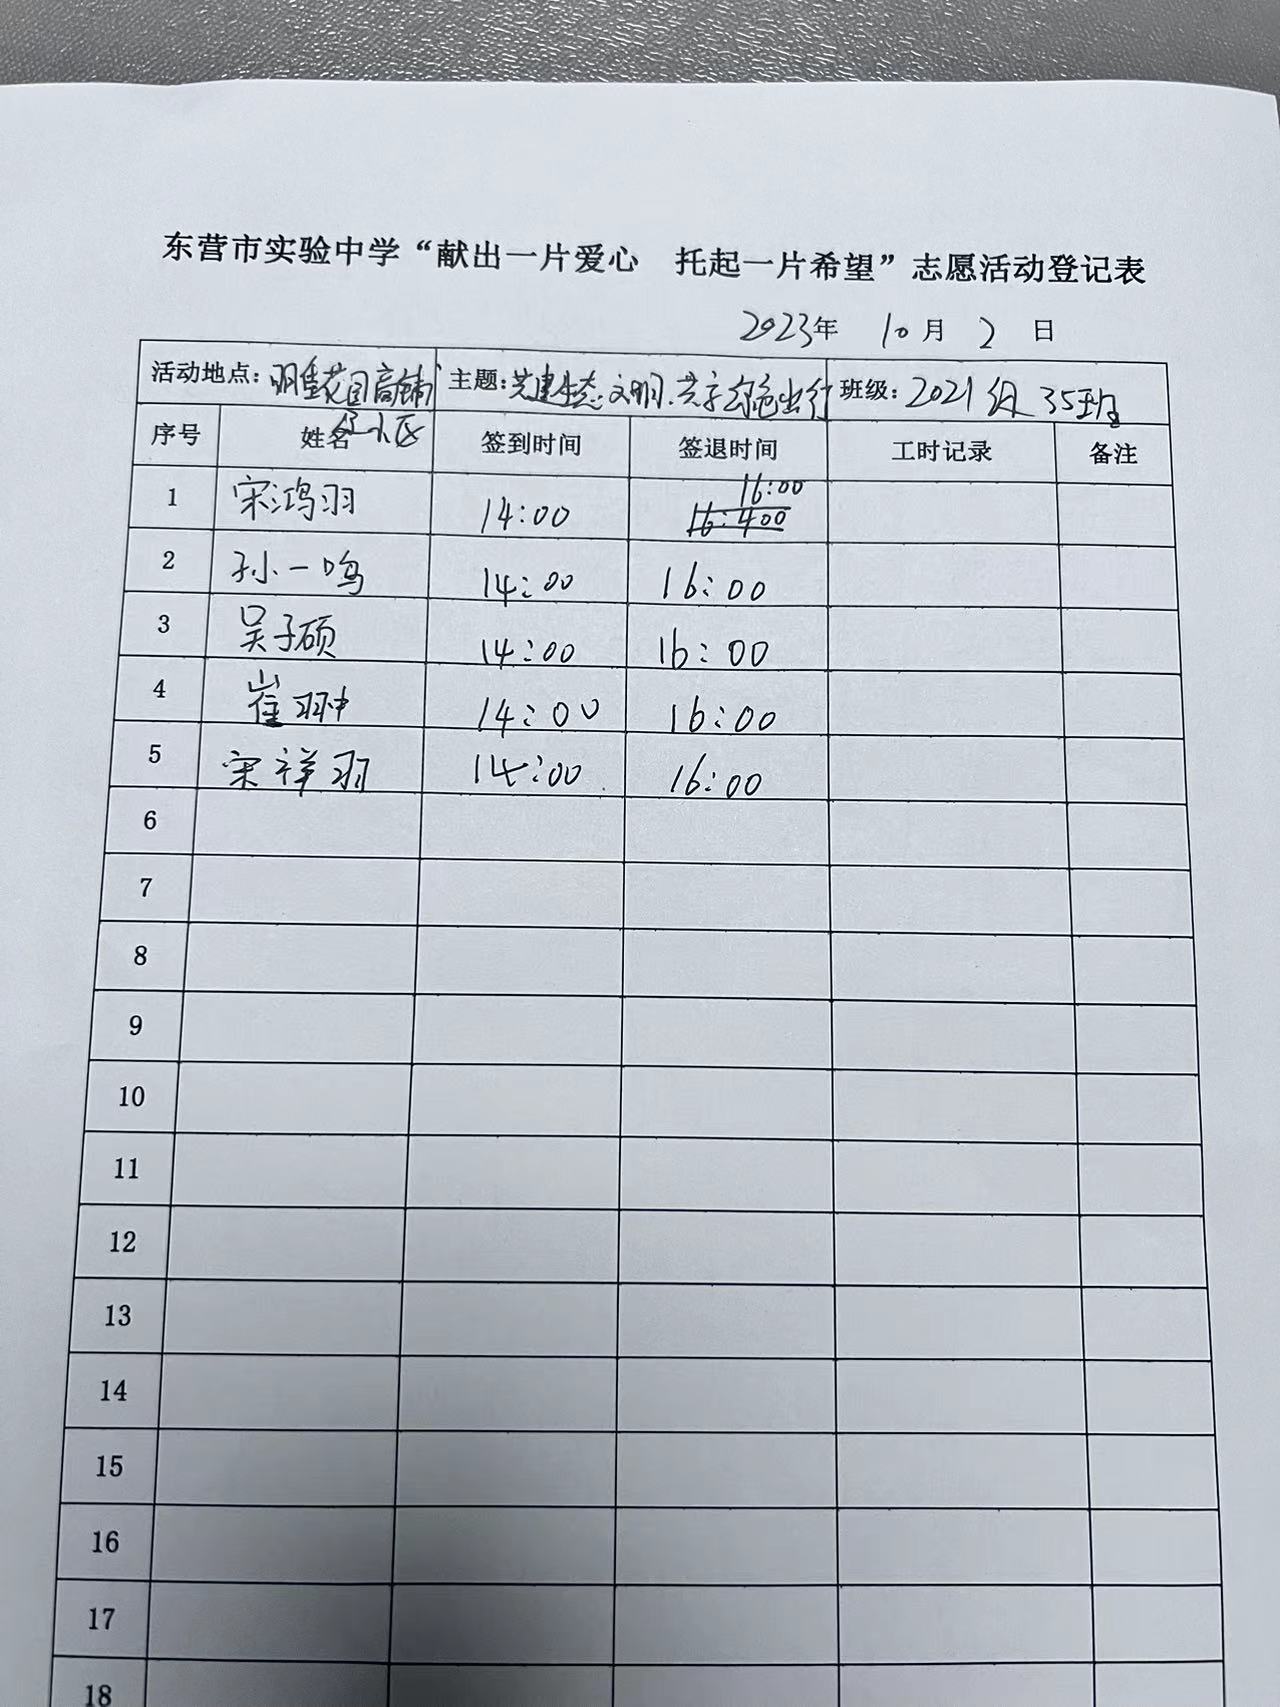 东营市实验中学“献出一片爱心 托起一片希望”志愿活动登记表
2023年 10月 2日
活动地点：明月花园商铺 主题：共建生态文明.共享绿色出行 班级：2021级35班
住小区
序号 姓名 签到时间 签退时间 工时记录 备注
16:00
1 宋鸿羽 14:00 16:400
2 孙一鸣 14:00 16:00
3 吴子硕 14:00 16:00
4 崔翀 14:00 16:00
5 宋祥羽 14:00 16:00
6
7
8
9
10
11
12
13
14
15
16
17
18